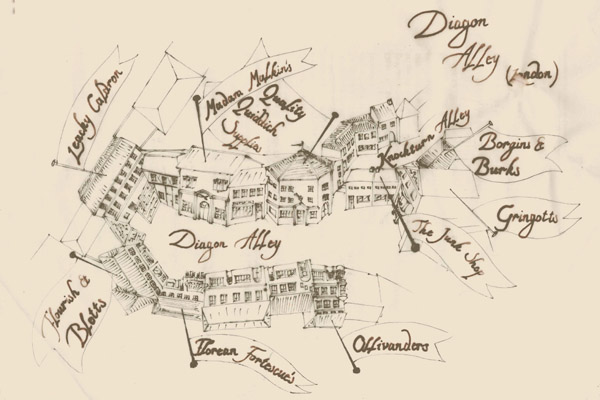 Diagon
Alley (London)
Leaehy Caldron
Madam Malkin's
Quality
Quidditch
Supplies
Knockturn Alley
Borgins &
Burks
Gringotts
The Junk Shop
Diagon Alley
Flourish &
Blotts
Florean Fortescue's
Ollivanders